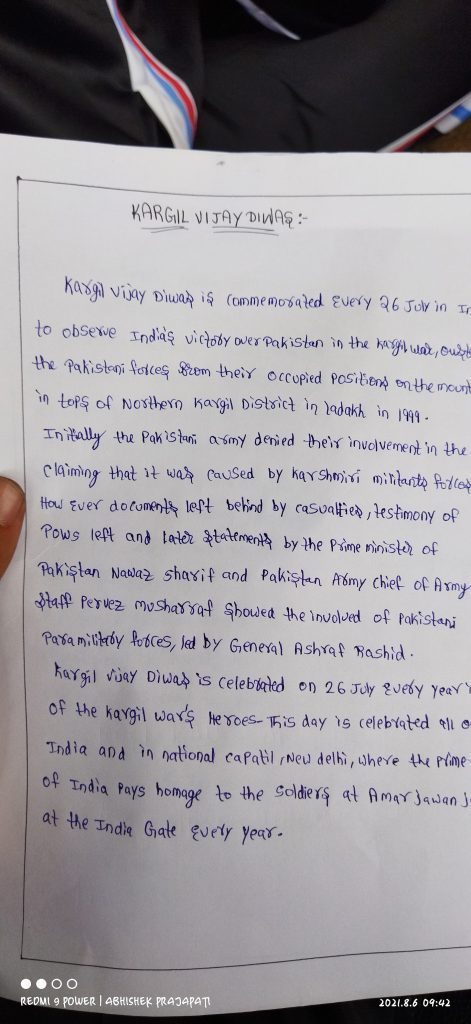 KARGIL VIJAY DIWAS :-
Kargil Vijay Diwas is commemorated Every 26 July in In
to observe India's victory over Pakistan in the Kargil war, oust
the Pakistani forces from their occupied Positions on the mount
in tops of Northern Kargil District in ladakh in 1999.
Initially the Pakistani army denied their involvement in the
Claiming that it was caused by Karshmiri militants forces
How ever documents left behind by casualties, testimony of
POWs left and later statements by the Prime minister of
Pakistan Nawaz sharif and Pakistan Army chief of Army
Staff Pervez musharraf showed the involved of Pakistani
Paramilitary forces, led by General Ashraf Rashid.
Kargil vijay Diwas is celebrated on 26 July every year
of the Kargil war's Heroes- This day is celebrated all o
India and in national capatil, New delhi, where the Prime
of India Pays homage to the soldiers at Amar Jawan J
at the India Gate every year.
REDMI 9 POWER | ABHISHEK PRAJAPATI
2021.8.6 09:42